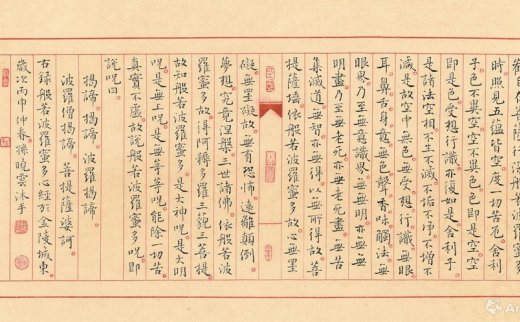 時照見五蘊皆空度一切苦厄舍利
子色不異空空不異色色即是空空
即是色受想行識亦復如是舍利子
是諸法空相不生不滅不垢不淨不增不
減是故空中無色無受想行識無眼
耳鼻舌身意無色聲香味觸法無
眼界乃至無意識界無無明亦無無
明盡乃至無老死亦無老死盡無苦
集滅道無智亦無得以無所得故菩
提薩埵依般若波羅蜜多故心無罣
礙無罣礙故無有恐怖遠離顛倒
夢想究竟涅槃三世諸佛依般若波
羅蜜多故得阿耨多羅三藐三菩提
故知般若波羅蜜多是大神咒是大明
咒是無上咒是無等等咒能除一切苦
真實不虛故說般若波羅蜜多咒即
說咒曰
揭諦揭諦波羅揭諦
波羅僧揭諦菩提薩婆訶
右錄般若波羅蜜多心經於金陵城東
歲次丙申仲春孫曉雲沐手